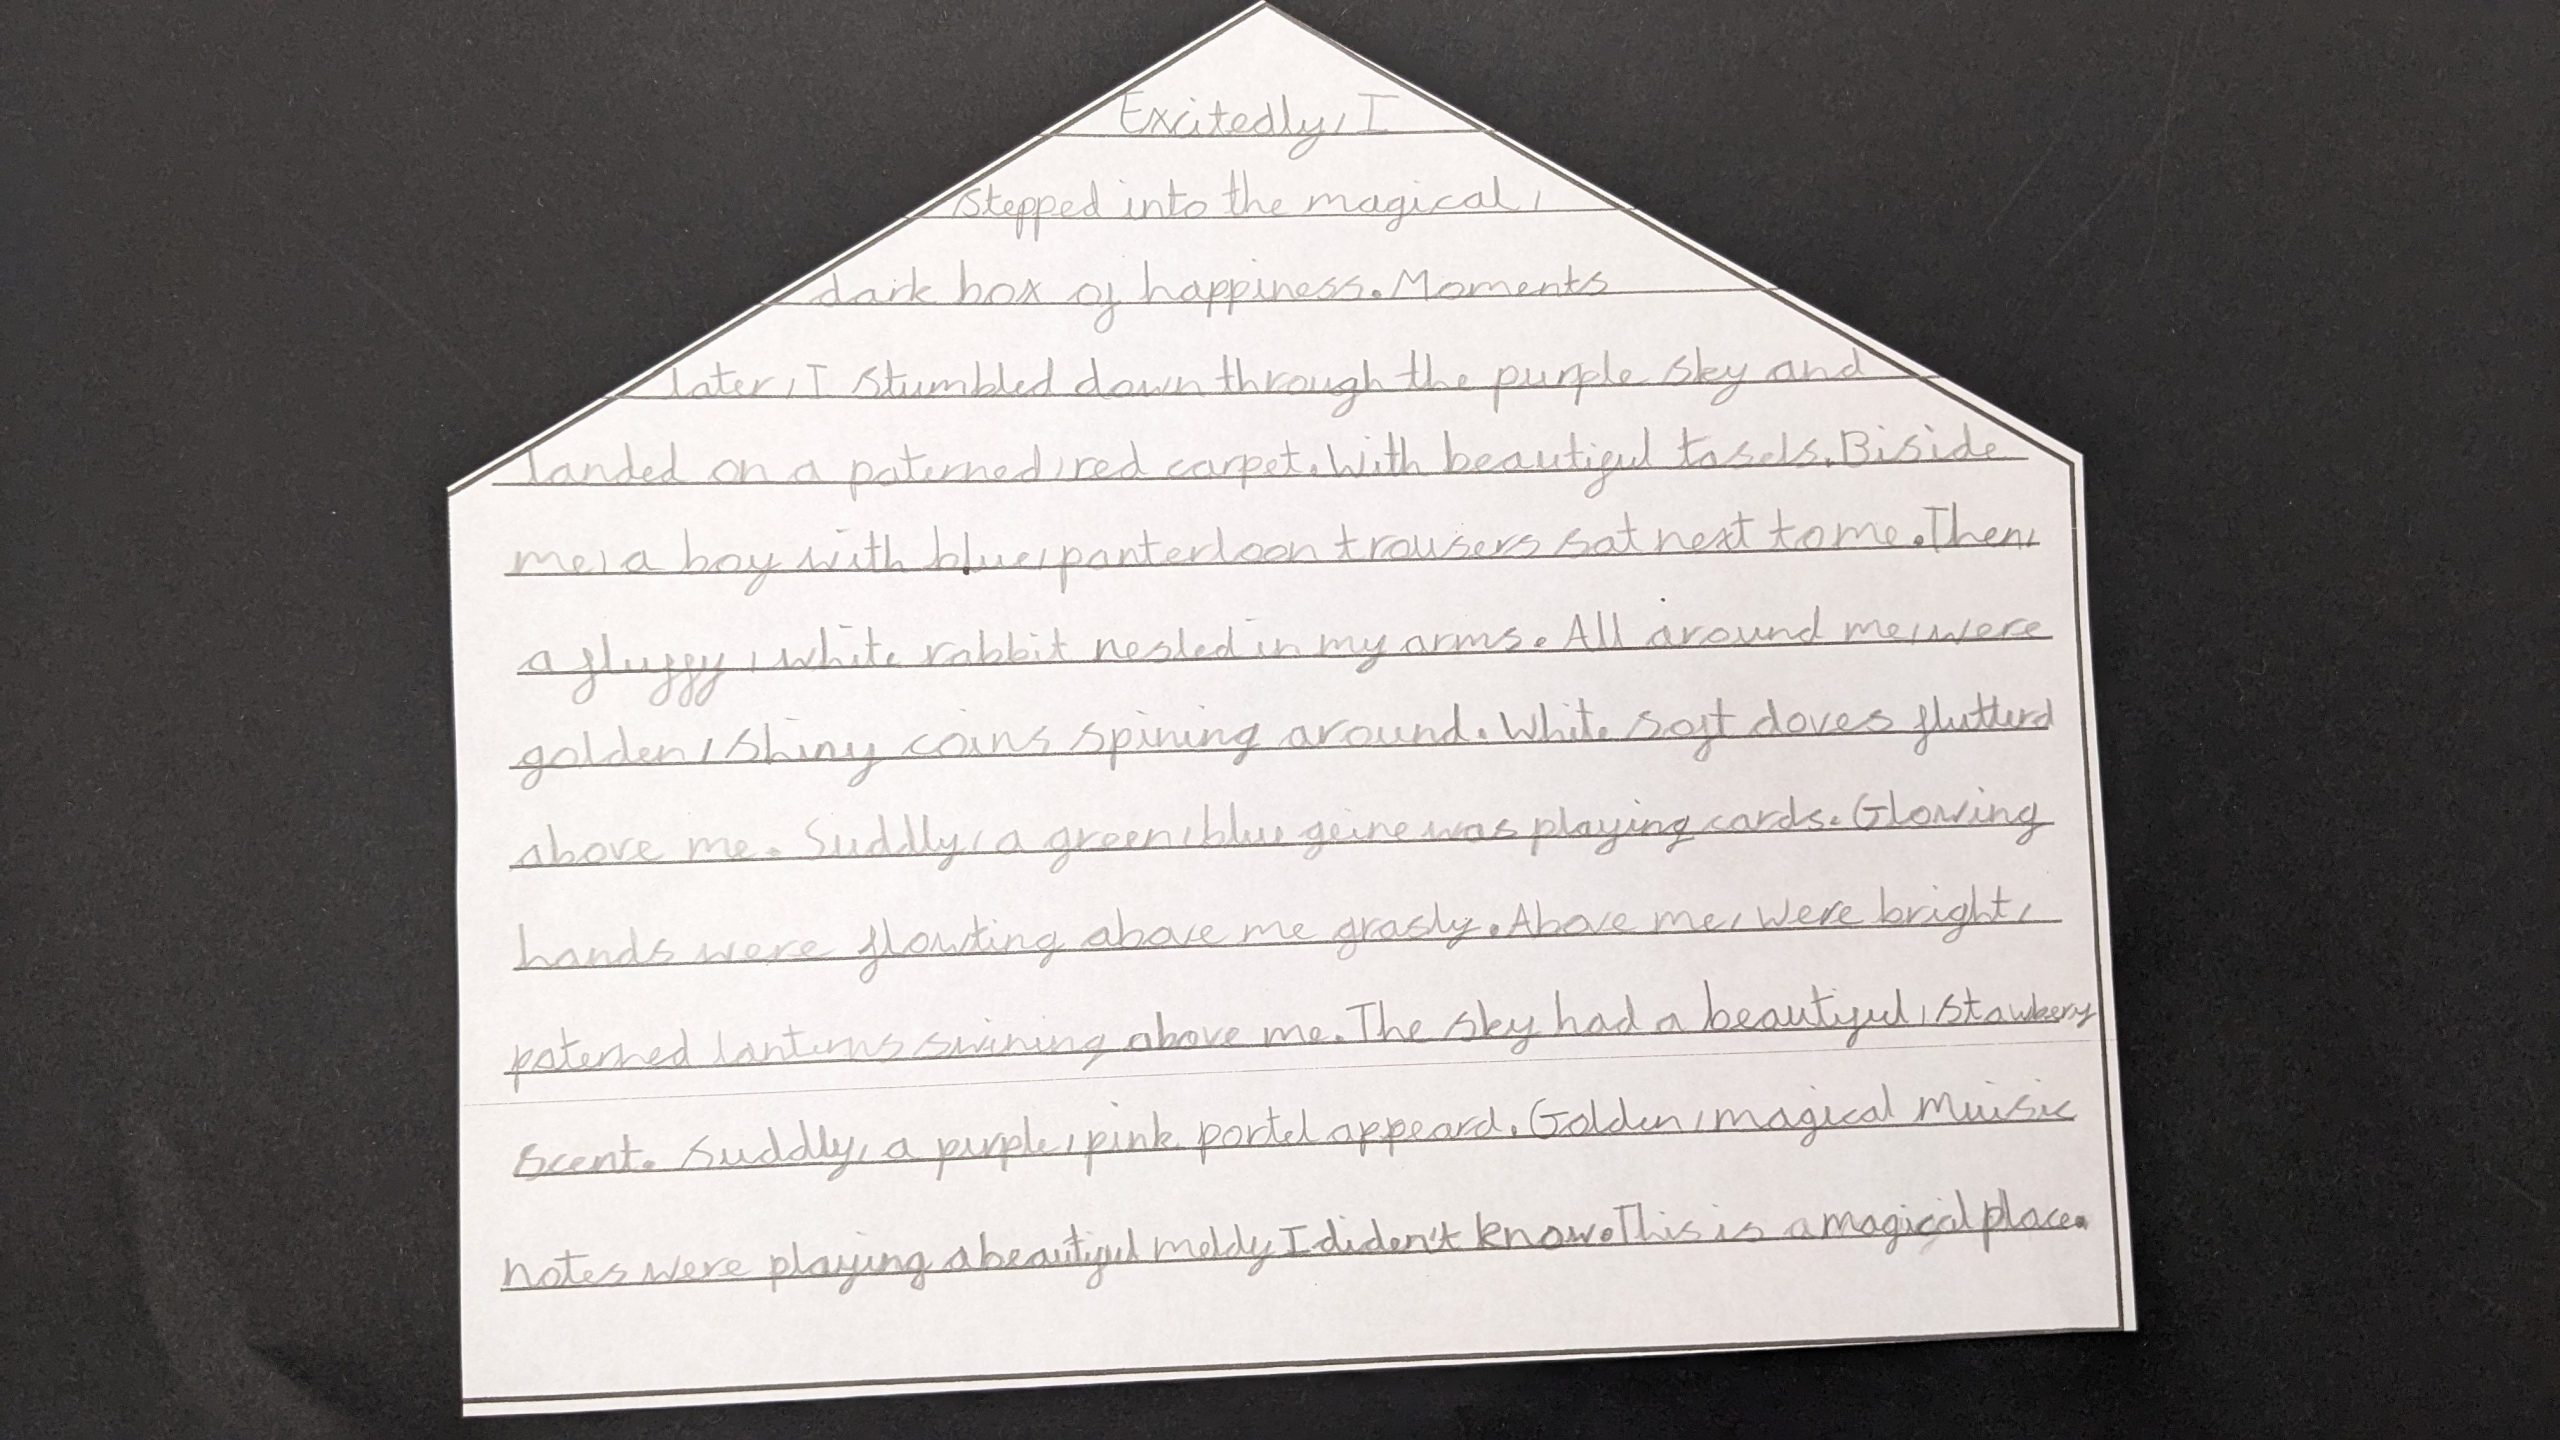 Excitedly, I
stepped into the magical,
dark box of happiness. Moments
later, I stumbled down through the purple sky and
landed on a paterned, red carpet. With beautiful tasels. Biside
me, a boy with blue, panterloon trousers sat next to me. Then,
a fluffy, white rabbit nesled in my arms. All around me, were
golden, shiny coins spining around. White soft doves flutterd
above me. Suddly, a green, blue geine was playing cards. Glowing
hands were flowting above me grasly. Above me, were bright,
paterned lanterns swining above me. The sky had a beautiful, stawbery
scent. Suddly, a purple, pink portel appeard. Golden, magical muisic
notes were playing a beautiful meldy I diden't know. This is a magical place.